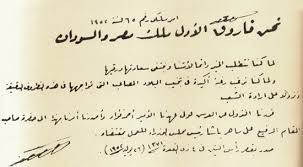 أمر ملكى رقم ٦٥ لسنة ١٩٥٢
نحن فاروق الأول ملك مصر والسودان
لما كنا نتطلب الخير دائما لأمتنا ونبتغى سعادتها ورقيها
ولما كنا نرغب رغبة أكيدة فى تجنيب البلاد المصاعب التى تواجهها فى هذه الظروف الدقيقة
ونزولا على إرادة الشعب
قررنا النزول عن العرش لولى عهدنا الأمير أحمد فؤاد وأصدرنا أمرنا بهذا إلى حضرة صاحب
المقام الرفيع على ماهر باشا رئيس مجلس الوزراء للعمل بمقتضاه
صدر بقصر رأس التين فى ٤ ذى القعدة سنة ١٣٧١ (٢٦ يوليو ١٩٥٢)